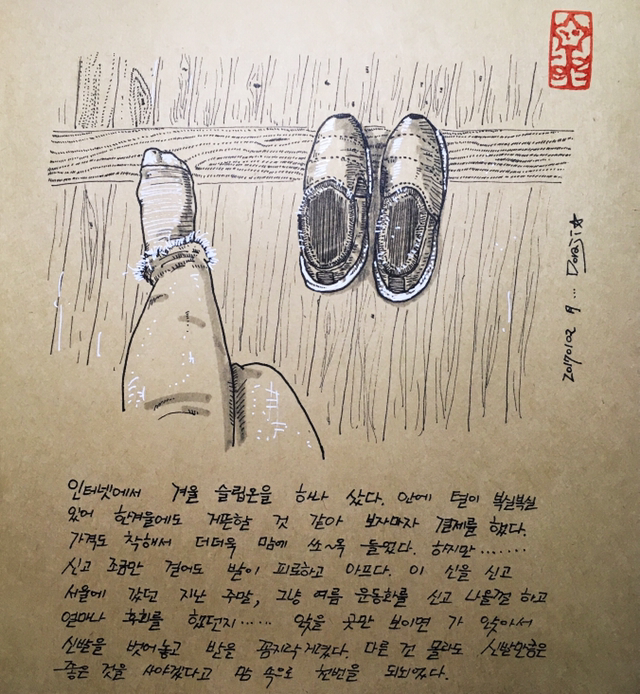 20170102 月 ... Doraji☆
인터넷에서 겨울 슬립온을 하나 샀다. 안에 털이 복실복실
있어 한겨울에도 거뜬할 것 같아 보자마자 결제를 했다.
가격도 착해서 더더욱 맘에 쏘~옥 들었다. 하지만.......
신고 조금만 걸어도 발이 피로하고 아프다. 이 신을 신고
서울에 갔던 지난 주말, 그냥 여름 운동화를 신고 나올걸 하고
얼마나 후회를 했던지...... 앉을 곳만 보이면 가 앉아서
신발을 벗어놓고 발을 꼼지락거렸다. 다른 건 몰라도 신발만큼은
좋은 것을 사야겠다고 맘 속으로 천번을 되뇌었다.